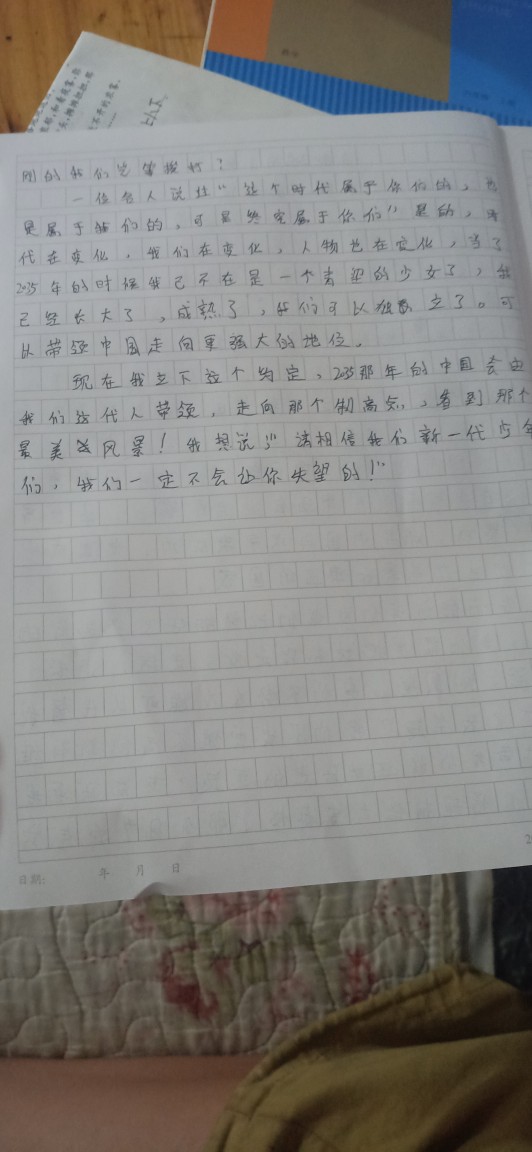 刚的我们怎能做好？
一位名人说过"这个时代属于你们的，也
是属于我们的，可是终究属于你们"是的，时
代在变化，我们在变化，人物也在变化，当了
2035年的时候我已不在是一个青望的少女了，我
已经长大了，成熟了，我们可以独立了。可
以带领中国走向更强大的地位。
现在我立下这个约定，2035那年的中国会由
我们这代人带领，走向那个制高点，看到那个
最美风景！我想说："请相信我们新一代少年
们，我们一定不会让你失望的！"
日期： 年 月 日